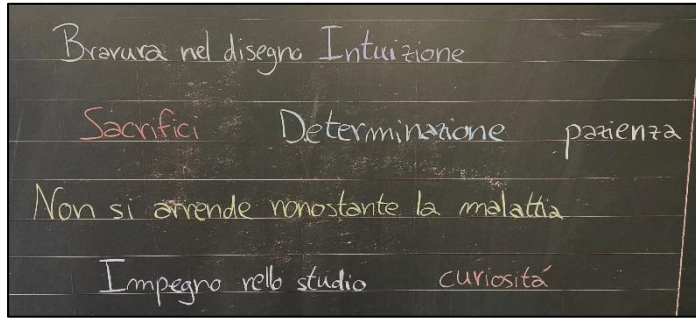 Bravura nel disegno Intuizione
Sacrifici Determinazione pazienza
Non si arrende nonostante la malattia
Impegno nello studio curiositá